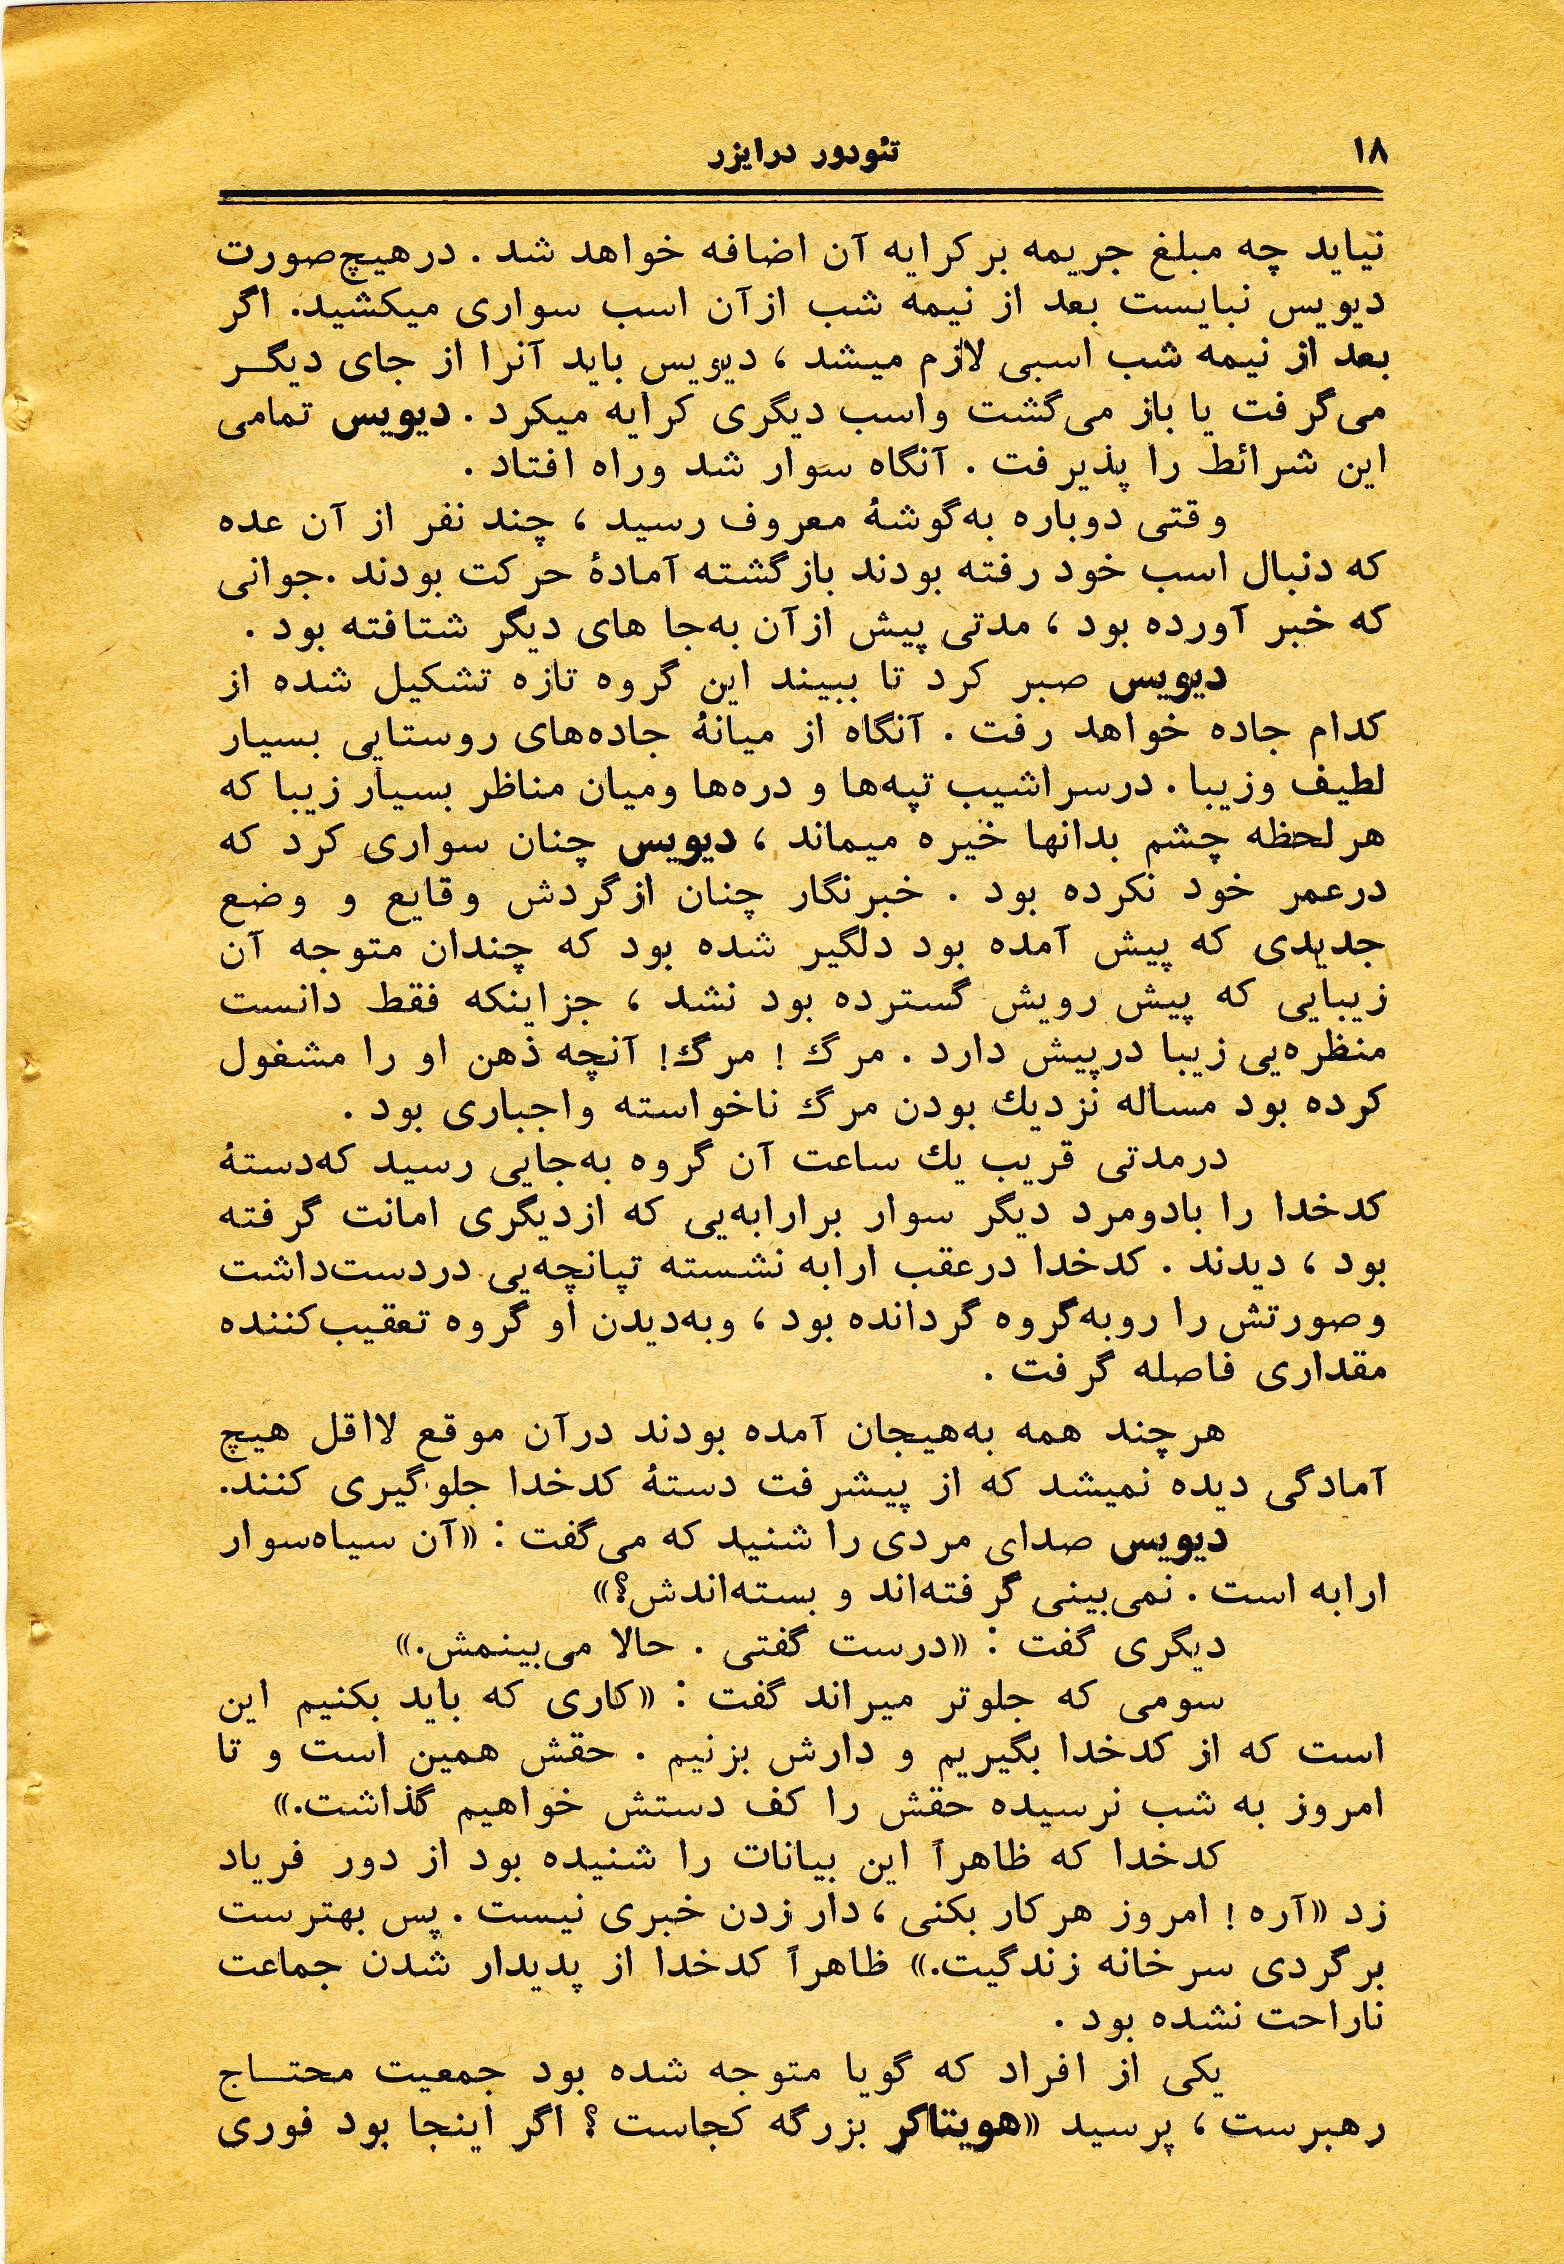 ۱۸
تئودور درایزر
نیاید چه مبلغ جریمه بر کرایه آن اضافه خواهد شد . درهیچ‌صورت
دیویس نبایست بعد از نیمه شب ازآن اسب سواری میکشید. اگر
بعد از نیمه شب اسبی لازم میشد ، دیویس باید آنرا از جای دیگــر
می‌گرفت یا باز می‌گشت واسب دیگری کرایه میکرد . دیویس تمامی
این شرائط را پذیرفت . آنگاه سوار شد وراه افتاد .
وقتی دوباره به‌گوشهٔ معروف رسید ، چند نفر از آن عده
که دنبال اسب خود رفته بودند بازگشته آمادهٔ حرکت بودند .جوانی
که خبر آورده بود ، مدتی پیش ازآن به‌جا های دیگر شتافته بود .
دیویس صبر کرد تا ببیند این گروه تازه تشکیل شده از
کدام جاده خواهد رفت . آنگاه از میانهٔ جاده‌های روستایی بسیار
لطیف وزیبا . درسراشیب تپه‌ها و دره‌ها ومیان مناظر بسیار زیبا که
هر لحظه چشم بدانها خیره میماند ، دیویس چنان سواری کرد که
درعمر خود نکرده بود . خبرنگار چنان ازگردش وقایع و وضع
جدیدی که پیش آمده بود دلگیر شده بود که چندان متوجه آن
زیبایی که پیش رویش گسترده بود نشد ، جزاینکه فقط دانست
منظره‌یی زیبا درپیش دارد . مرگ ! مرگ! آنچه ذهن او را مشغول
کرده بود مساله نزدیك بودن مرگ ناخواسته واجباری بود .
درمدتی قریب یك ساعت آن گروه به‌جایی رسید که‌دستهٔ
کدخدا را بادومرد دیگر سوار برارابه‌یی که ازدیگری امانت گرفته
بود ، دیدند . کدخدا درعقب ارابه نشسته تپانچه‌یی دردست‌داشت
وصورتش را روبه‌گروه گردانده بود ، وبه‌دیدن او گروه تعقیب‌کننده
مقداری فاصله گرفت .
هرچند همه به‌هیجان آمده بودند درآن موقع لااقل هیچ
آمادگی دیده نمیشد که از پیشرفت دستهٔ کدخدا جلوگیری کنند.
دیویس صدای مردی را شنید که می‌گفت : «آن سیاه‌سوار
ارابه است . نمی‌بینی گرفته‌اند و بسته‌اندش؟»
دیگری گفت : «درست گفتی . حالا می‌بینمش.»
سومی که جلوتر میراند گفت : «کاری که باید بکنیم این
است که از کدخدا بگیریم و دارش بزنیم . حقش همین است و تا
امروز به شب نرسیده حقش را کف دستش خواهیم گذاشت.»
کدخدا که ظاهراً این بیانات را شنیده بود از دور فریاد
زد «آره ! امروز هرکار بکنی ، دار زدن خبری نیست . پس بهترست
برگردی سرخانه زندگیت.» ظاهراً کدخدا از پدیدار شدن جماعت
ناراحت نشده بود .
یکی از افراد که گویا متوجه شده بود جمعیت محتــاج
رهبرست ، پرسید «هویتاکر بزرگه کجاست ؟ اگر اینجا بود فوری